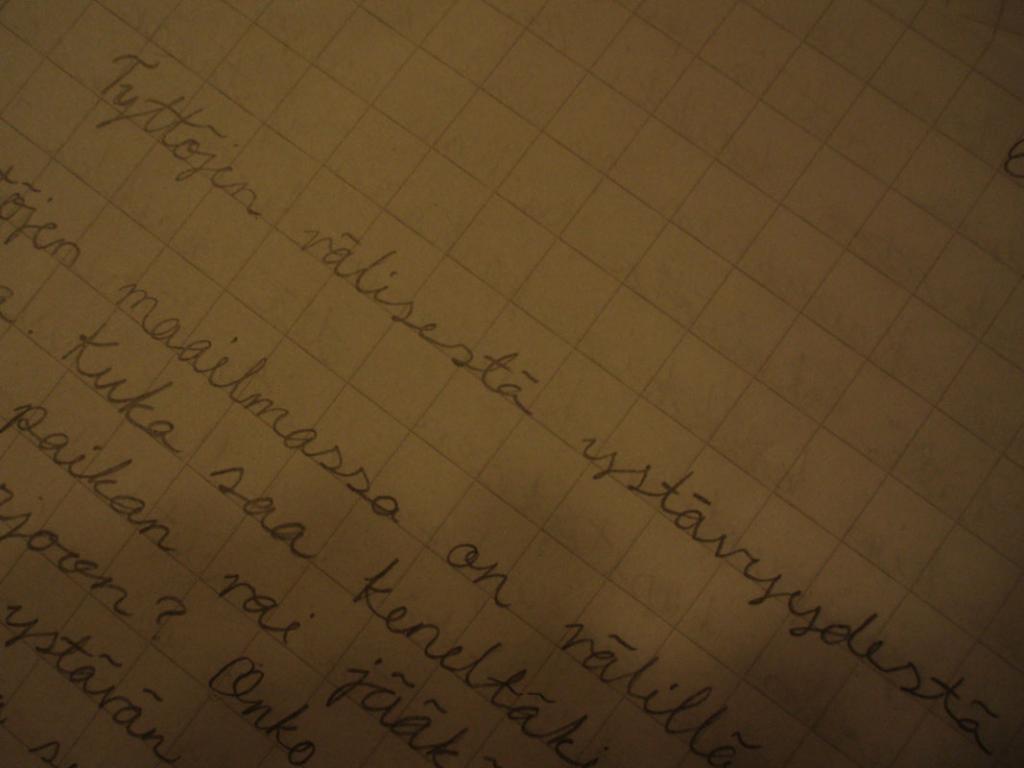 Tyttöjen välisestä ystävyydestä
töjen maailmassa on välillä
a. Kuka saa keneltäki
paikan vai jääk
joon? Onko
ystävän